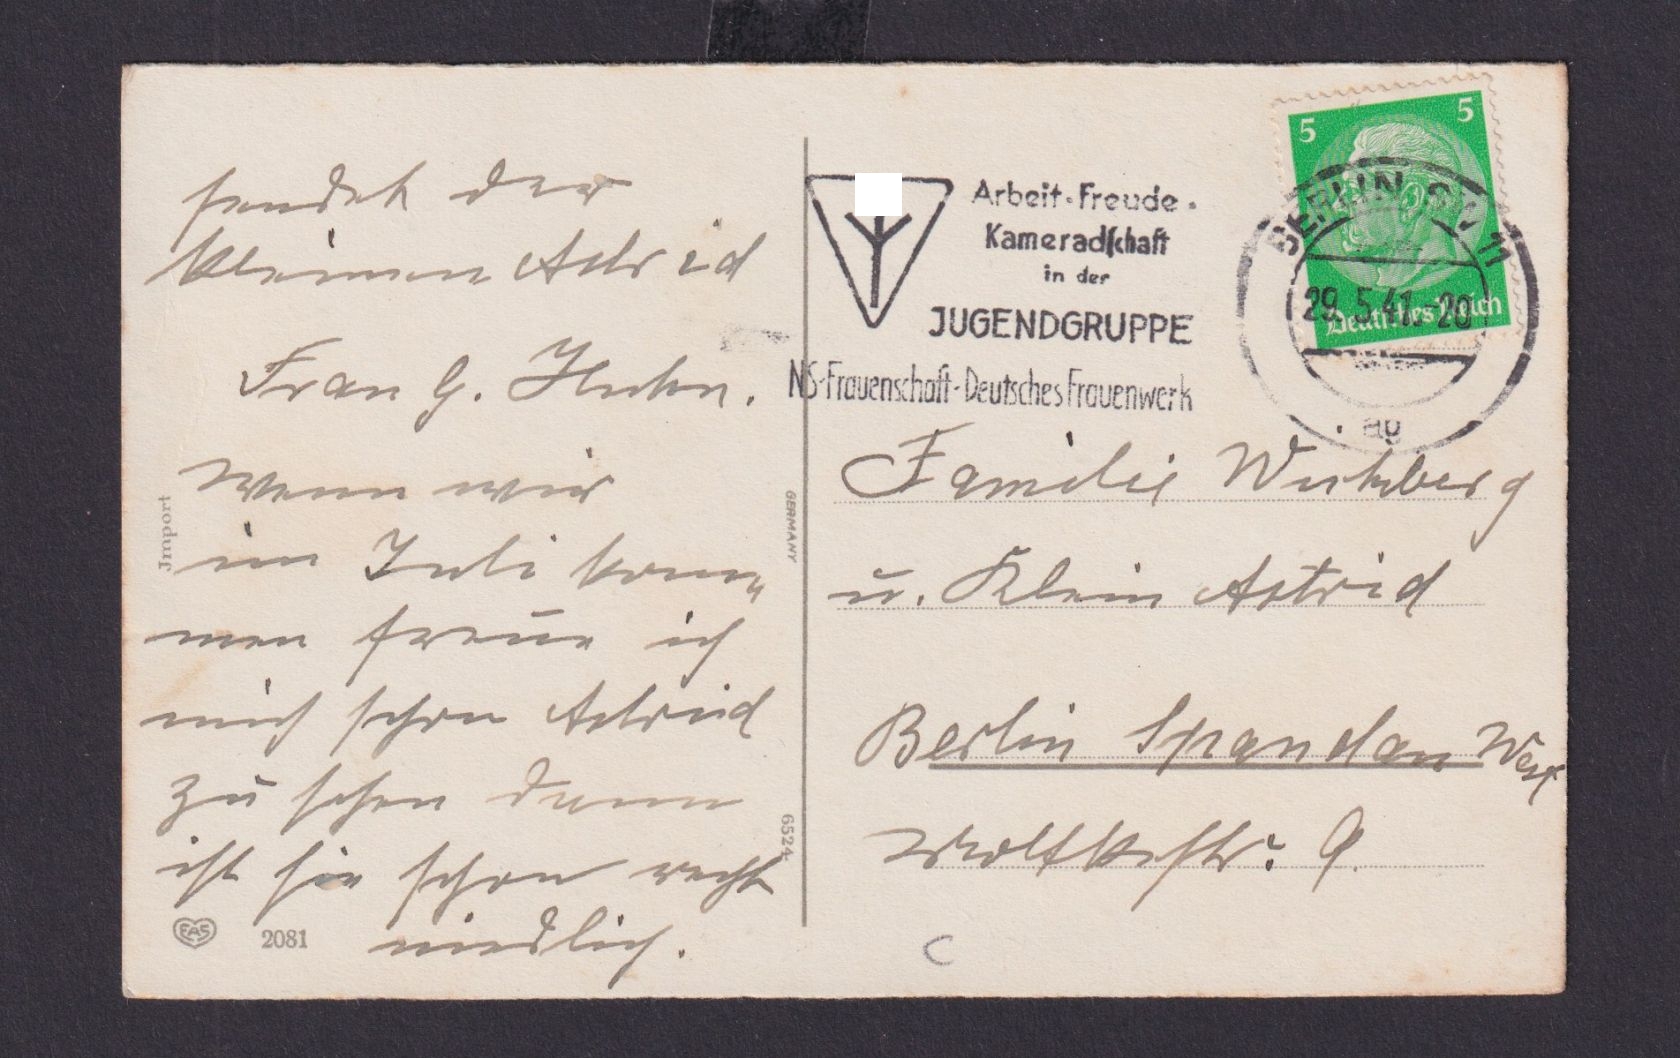 sendet der
kleinen Astrid
Frau G. Huhn.
Wenn wir
im Juli kom=
men freue ich
mich schon Astrid
zu sehen denn
ist sie schon recht
niedlich.
Jmport
EAS
2081
GERMANY
6524
Arbeit · Freude ·
Kameradschaft
in der
JUGENDGRUPPE
NS-Frauenschaft-Deutsches Frauenwerk
5 5
Deutsches Reich
BERLIN SW 11
29.5.41.-20
ag
Familie
u. Klein Astrid
Berlin Spandau West
9.
C